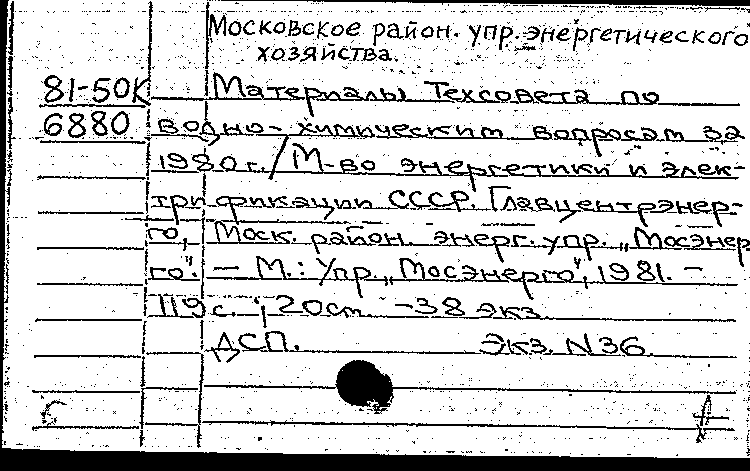 Московское район. упр. энергетического
хозяйства.
81-50К Материалы Техсовета по
6880 водно-химическим вопросам за
1980 г. / М-во энергетики и элек-
трификации СССР. Главцентрэнер-
го, Моск. район. энерг. упр. „Мосэнер
го". — М.: Упр. „Мосэнерго", 1981. —
119 с.; 20 см — 38 экз.
ДСП. Экз. N 36